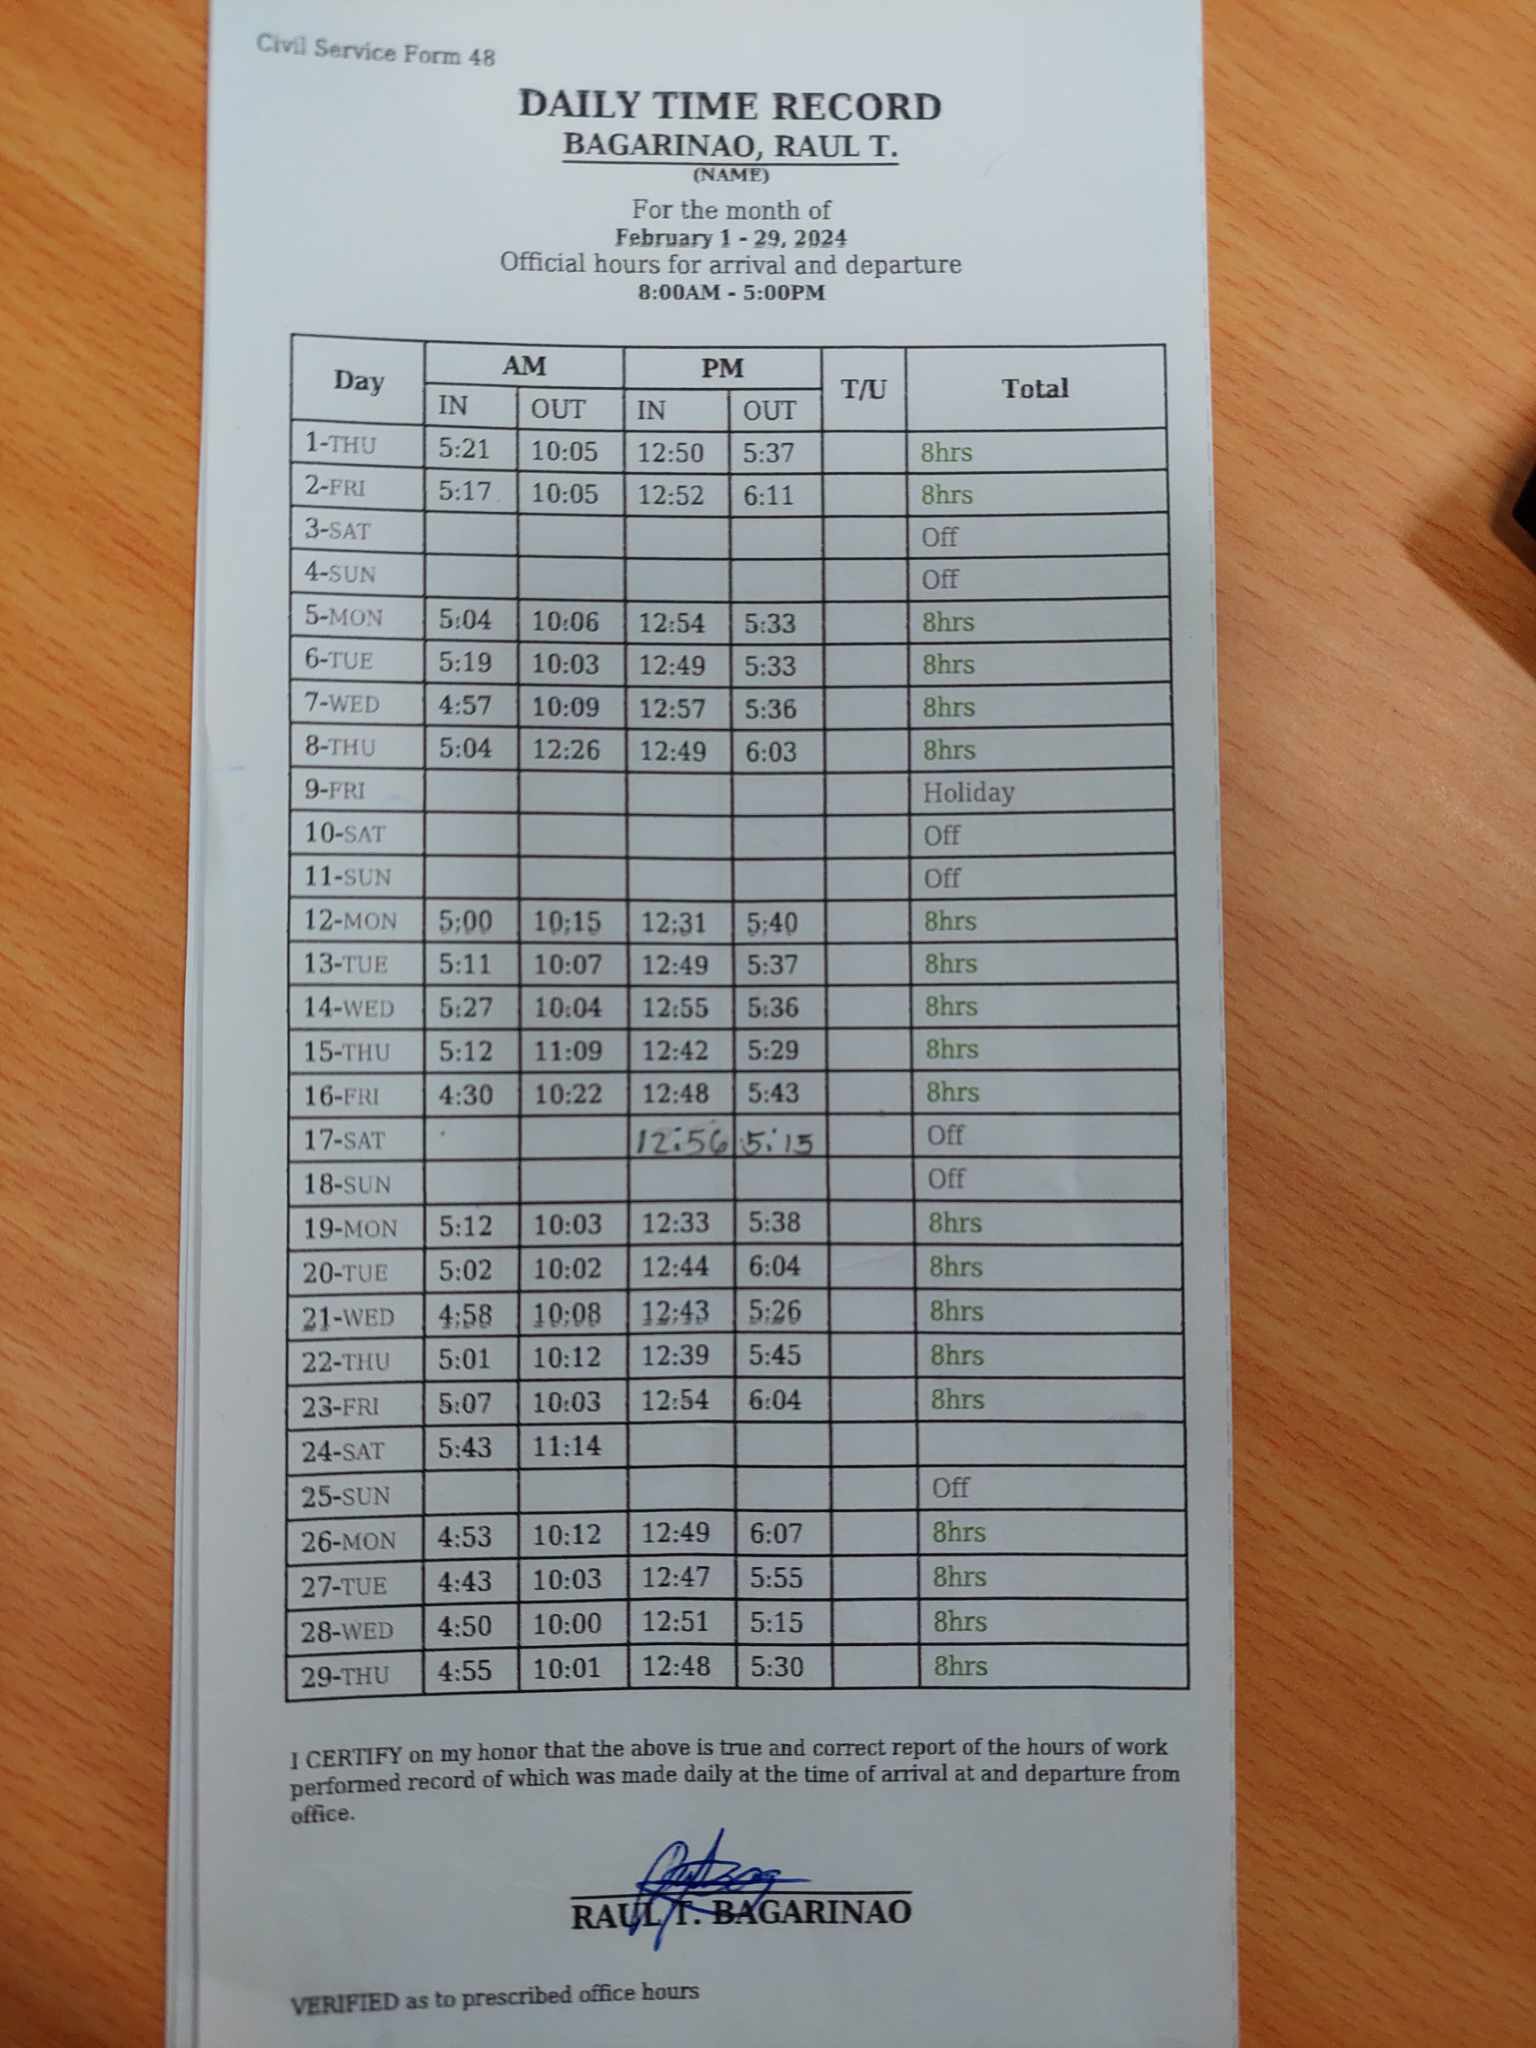 Civil Service Form 48
DAILY TIME RECORD
BAGARINAO, RAUL T.
(NAME)
For the month of
February 1 - 29, 2024
Official hours for arrival and departure
8:00AM - 5:00PM
Day AM PM T/U Total
IN OUT IN OUT
1-THU 5:21 10:05 12:50 5:37 8hrs
2-FRI 5:17 10:05 12:52 6:11 8hrs
3-SAT Off
4-SUN Off
5-MON 5:04 10:06 12:54 5:33 8hrs
6-TUE 5:19 10:03 12:49 5:33 8hrs
7-WED 4:57 10:09 12:57 5:36 8hrs
8-THU 5:04 12:26 12:49 6:03 8hrs
9-FRI Holiday
10-SAT Off
11-SUN Off
12-MON 5:00 10:15 12:31 5:40 8hrs
13-TUE 5:11 10:07 12:49 5:37 8hrs
14-WED 5:27 10:04 12:55 5:36 8hrs
15-THU 5:12 11:09 12:42 5:29 8hrs
16-FRI 4:30 10:22 12:48 5:43 8hrs
17-SAT 12:56 5:15 Off
18-SUN Off
19-MON 5:12 10:03 12:33 5:38 8hrs
20-TUE 5:02 10:02 12:44 6:04 8hrs
21-WED 4:58 10:08 12:43 5:26 8hrs
22-THU 5:01 10:12 12:39 5:45 8hrs
23-FRI 5:07 10:03 12:54 6:04 8hrs
24-SAT 5:43 11:14
25-SUN Off
26-MON 4:53 10:12 12:49 6:07 8hrs
27-TUE 4:43 10:03 12:47 5:55 8hrs
28-WED 4:50 10:00 12:51 5:15 8hrs
29-THU 4:55 10:01 12:48 5:30 8hrs
I CERTIFY on my honor that the above is true and correct report of the hours of work
performed record of which was made daily at the time of arrival at and departure from
office.
RAUL T. BAGARINAO
VERIFIED as to prescribed office hours